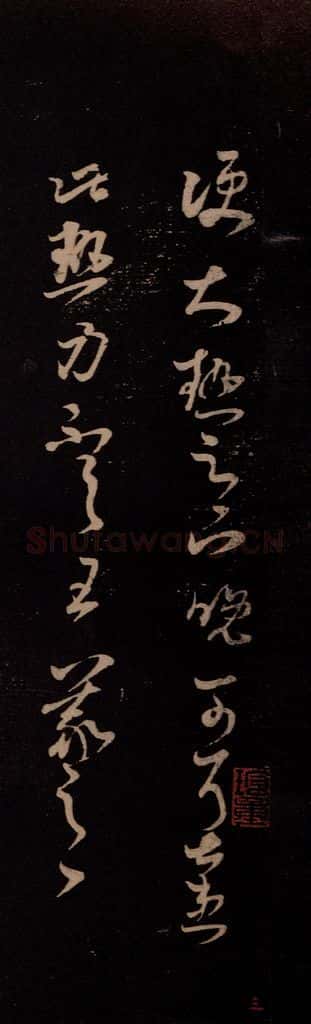 便大熱足下晚可耳甚患
此熱力不具王羲之上
三